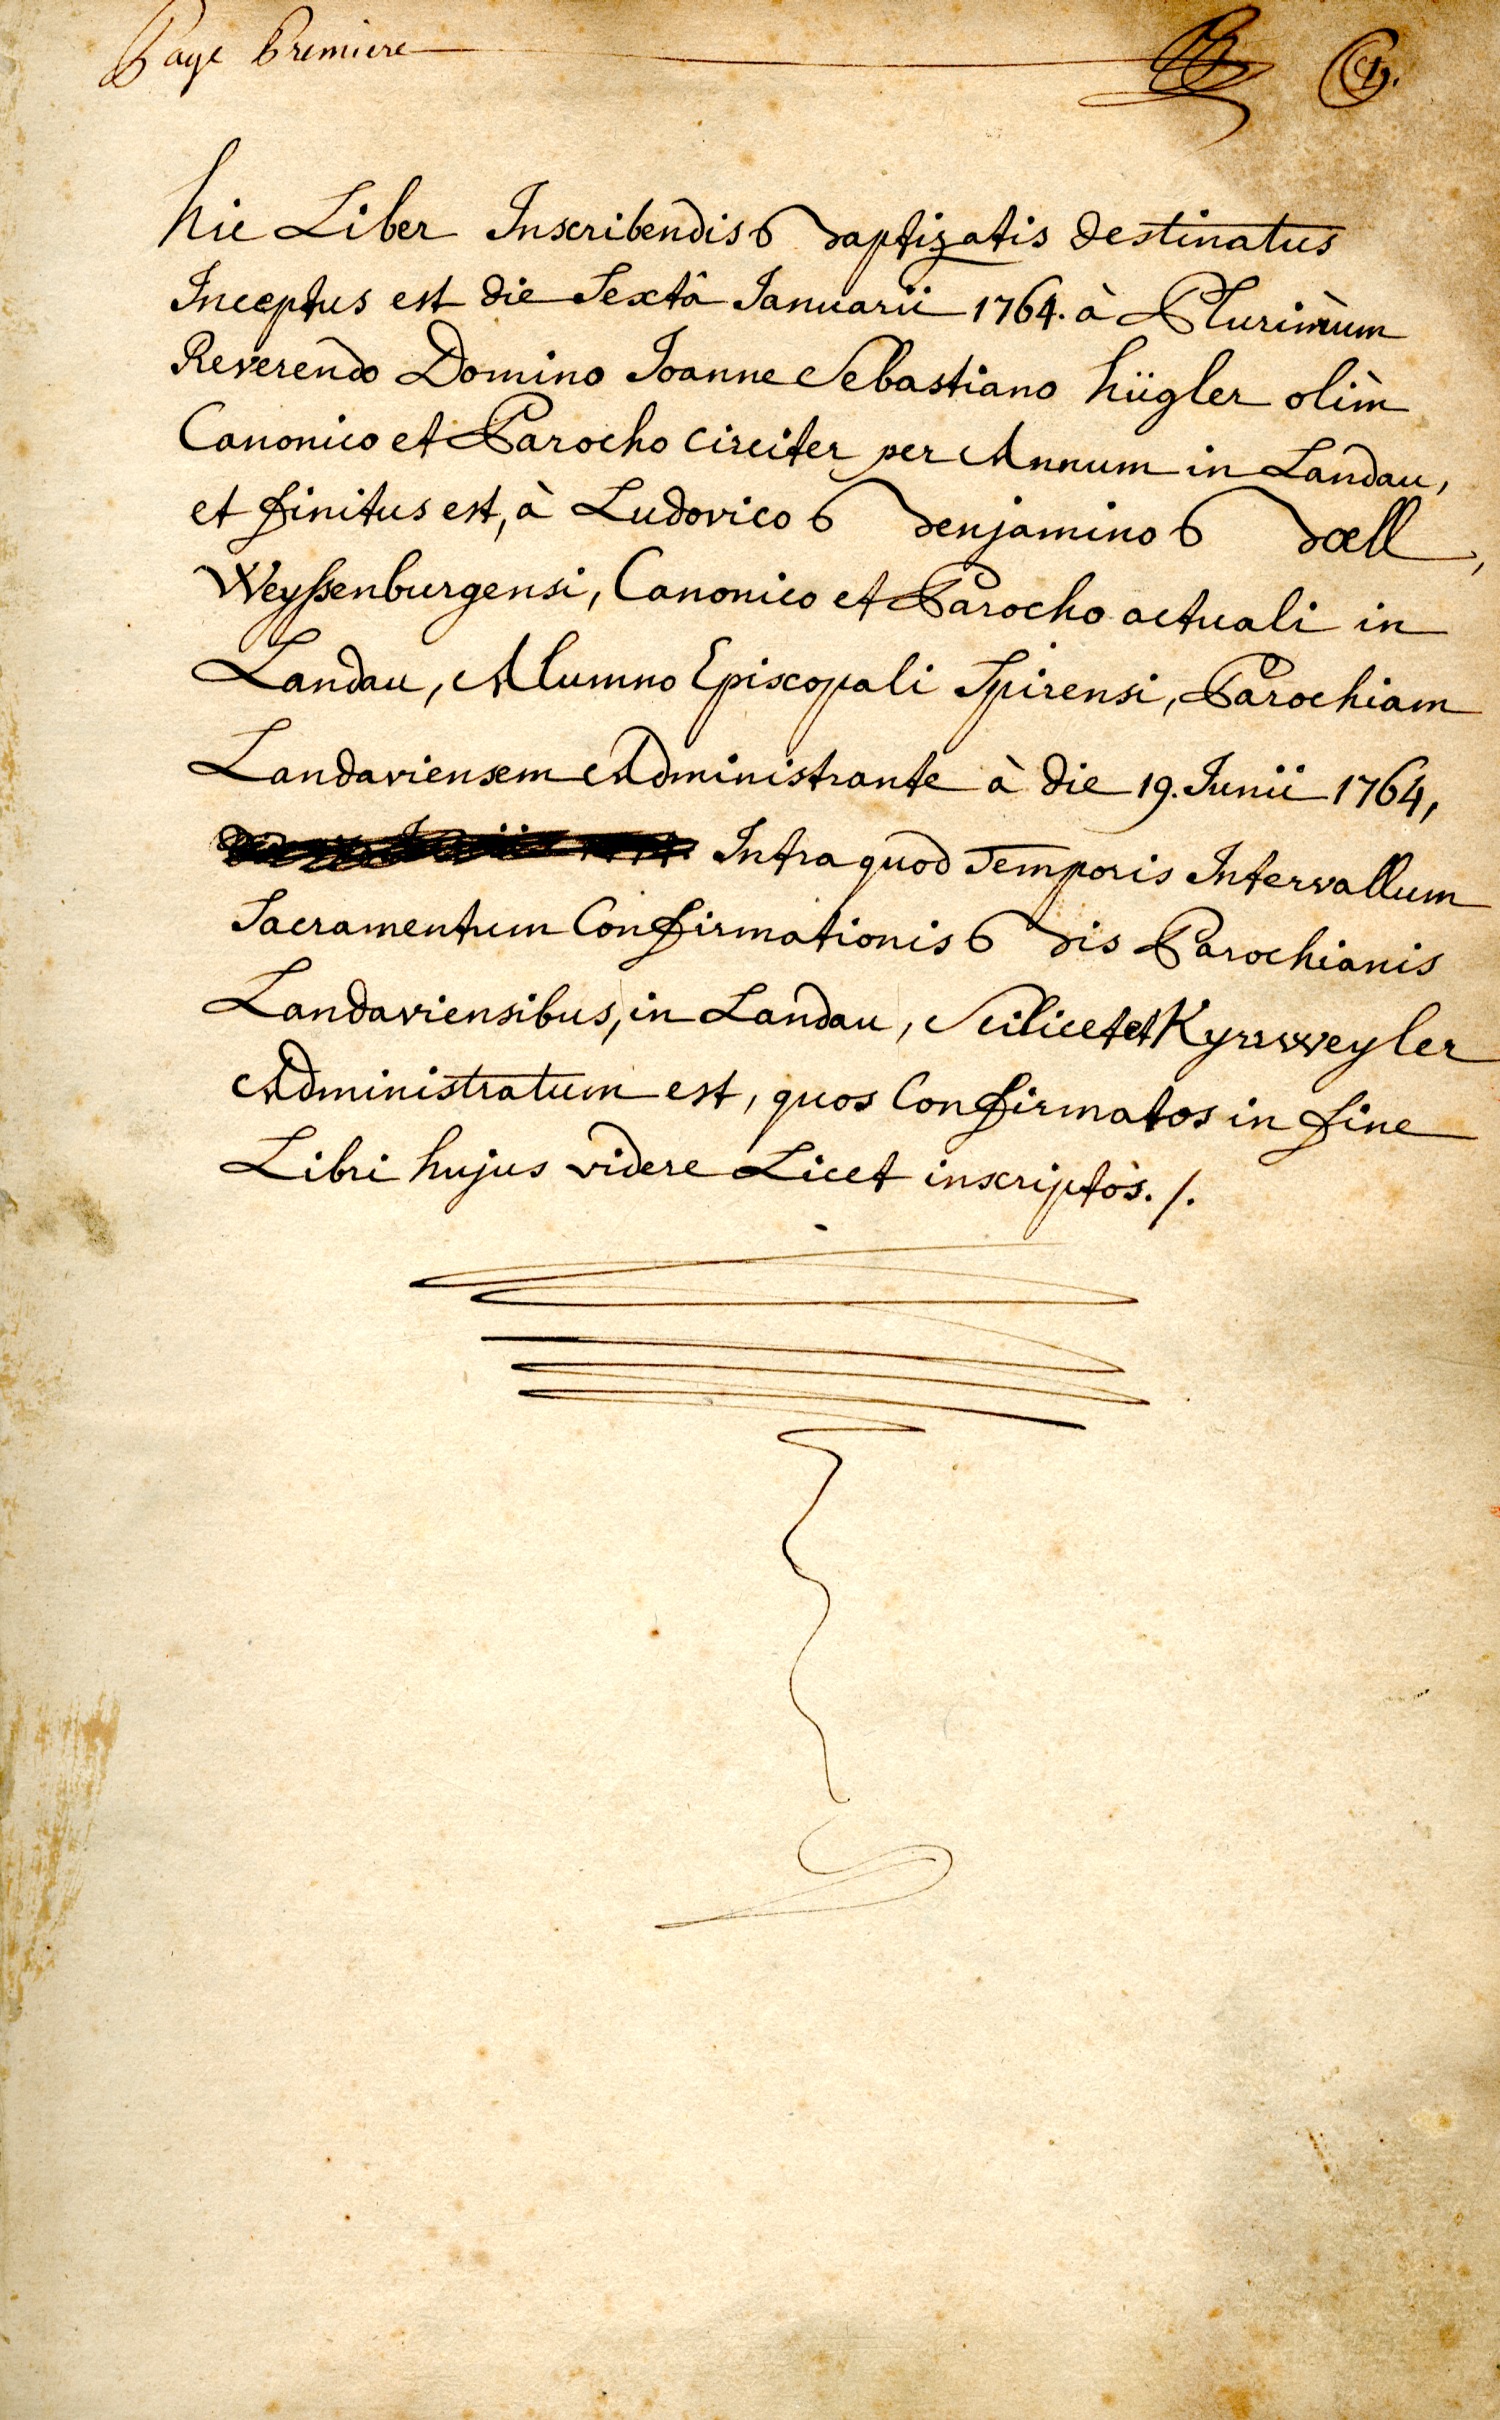 Page Premiere
1.
hic Liber Inscribendis Baptizatis destinatus
Inceptus est die Sextâ Januarii 1764. à Plurimùm
Reverendo Domino Joanne Sebastiano hügler olìm
Canonico et Parocho circiter per Annum in Landau,
et finitus est, à Ludovico Benjamino Boell,
Weyssenburgensi, Canonico et Parocho actuali in
Landau, Alumno Episcopali Spirensi, Parochiam
Landaviensem Administrante à die 19. Junii 1764,
Intra quod Temporis Intervallum
Sacramentum Confirmationis Bis Parochianis
Landaviensibus, in Landau, Scilicet et Kyrrweyler
Administratum est, quos Confirmatos in fine
Libri hujus videre Licet inscriptòs. /.